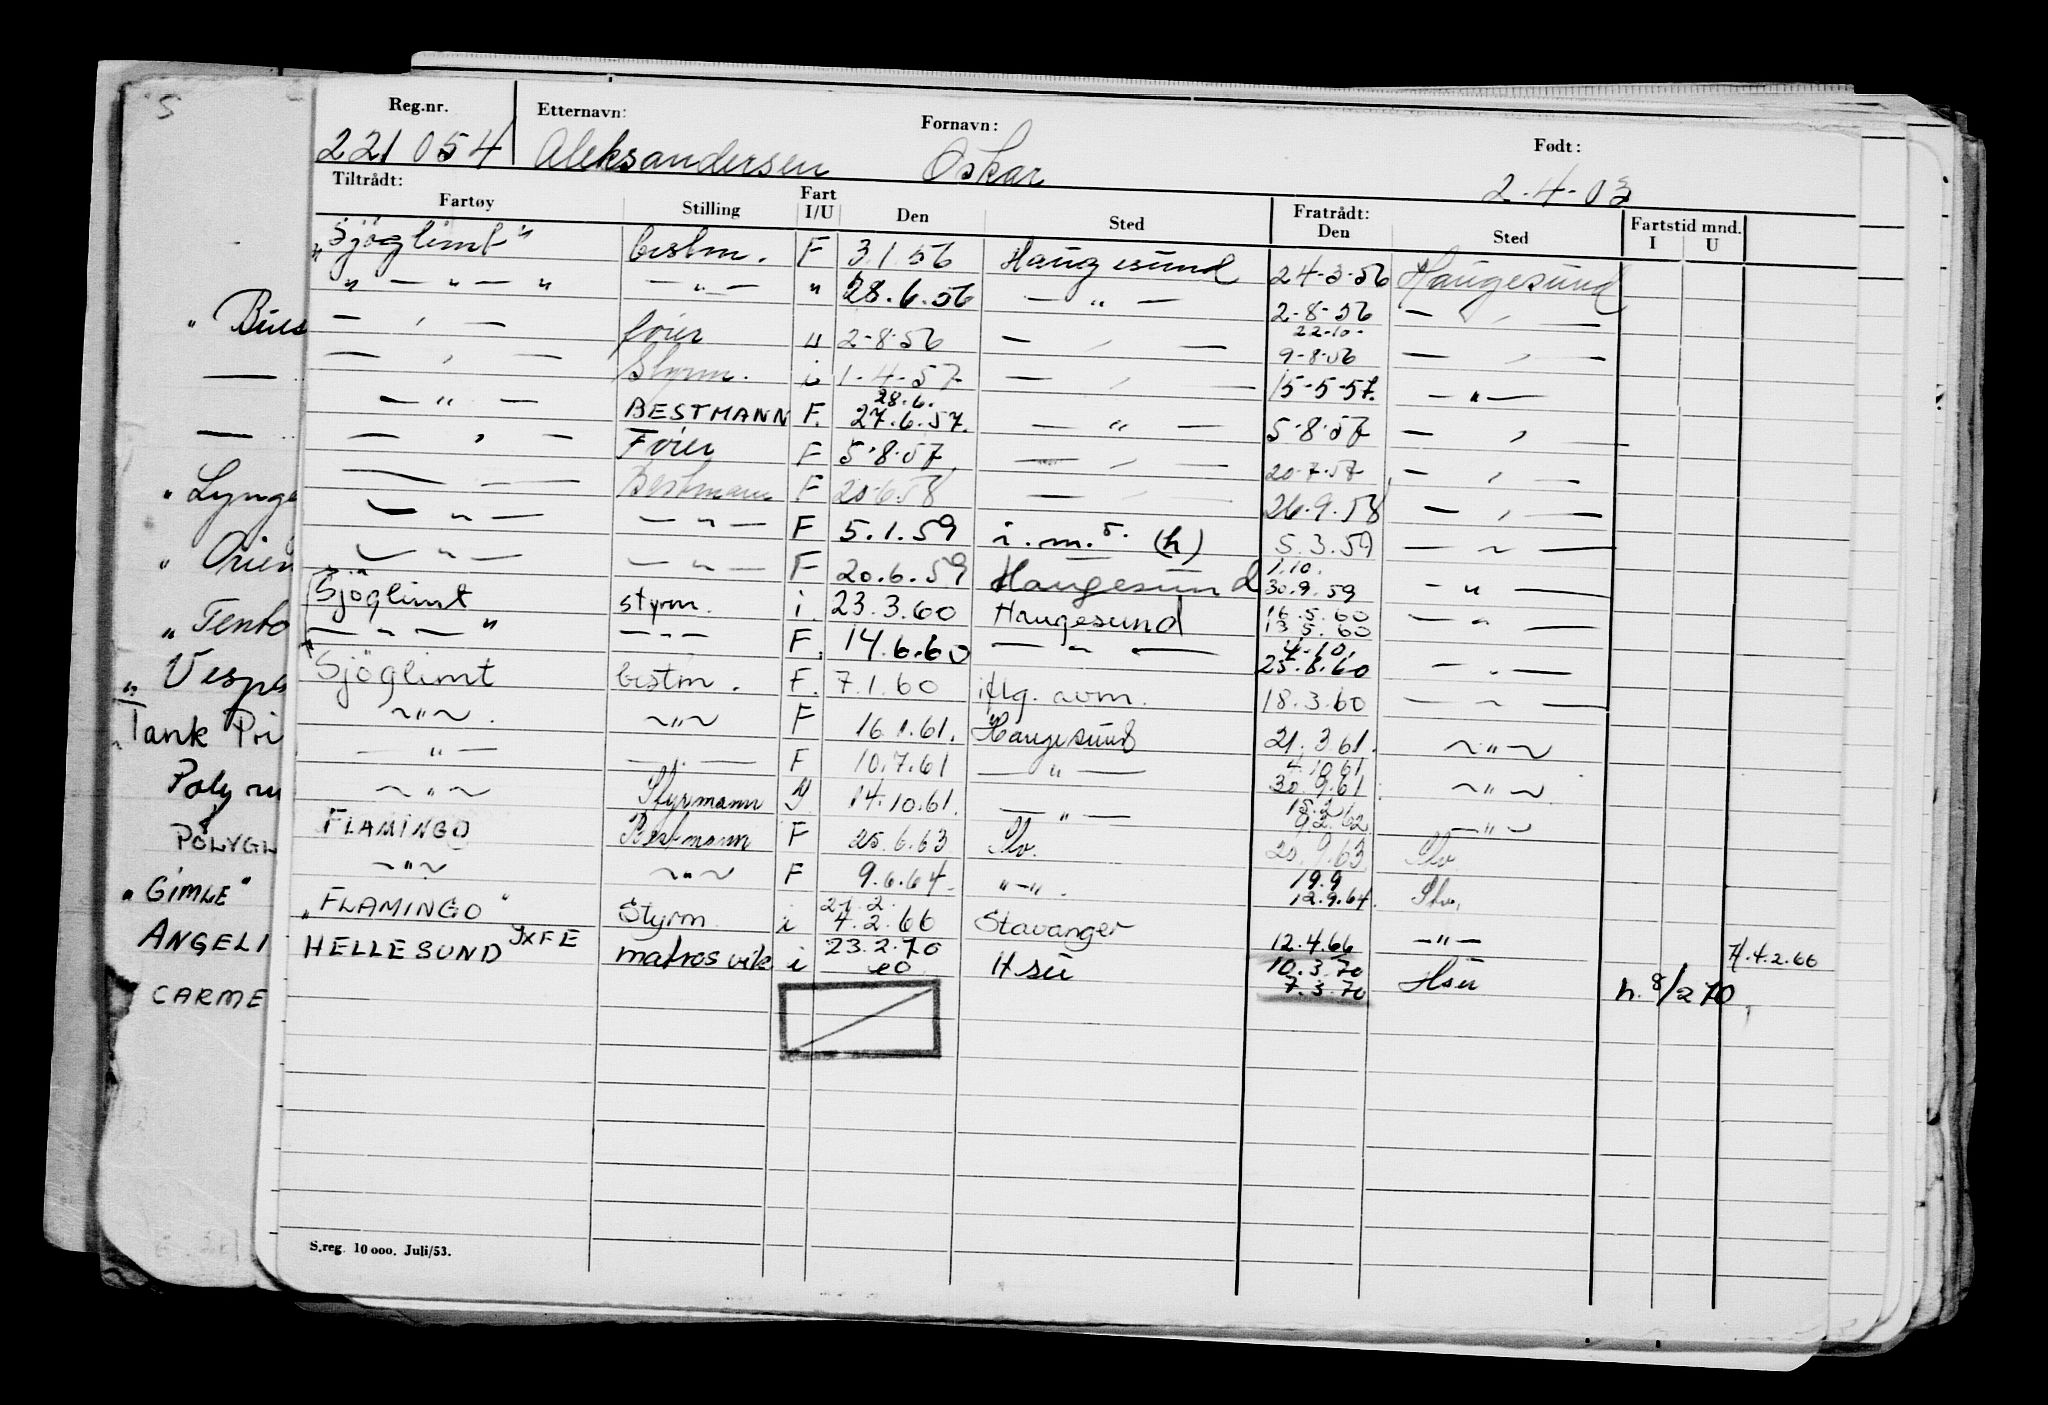 Reg.nr. Etternavn: Fornavn: Født:
221054 Aleksandersen Oskar 2-4-03
Tiltrådt: Fart Fratrådt: Fartstid mnd.
Fartøy Stilling I/U Den Sted Den Sted I U
"Sjöglimt" bestm. F 3.1.56 Haugesund 24-3-56 Haugesund
" — " — " — " — " 28.6.56 — " — 2-8-56 — , —
22-10-
— , — fører " 2-8-56 — , — 9-8-56 — , —
— , — Styrm. i 1-4-57 — , — 15-5-57. — " —
28.6.
— " — BESTMANN F. 27.6.57. — " — 5-8-57 — , —
— , — Fører F 5-8-57 — , — 20-7-57 — , —
— — Bestmann F 20-6-58 — , — 26-9-58 — , —
— " — — " — F 5.1.59 i.m.s. (h) 5.3.59 — " —
1.10.
— " — — " — F 20.6.59 Haugesund 30.9.59 — " —
16.5.60
"Sjöglimt" styrm. i. 23.3.60 Haugesund 13.5.60 — " —
4.10.
— " — — " — F. 14.6.60 — " — 25.8.60 — . —
Sjöglimt bestm. F. 7.1.60 iflg. avm. 18.3.60 — " —
~ " ~ ~ " ~ F 16.1.61. Haugesund 21.3.61. ~ " ~
4.10.61
— " — — . — F 10.7.61 — " — 30.9.61 ~ " ~
15.2
~ " ~ Styrmann I 14.10.61. — " — 9.2.62 — " ~
FLAMINGO Bestmann F 25.6.63 Stv. 20.9.63 Stv
19.9
~ " ~ ~ " ~ F 9.6.64. " — " . 12.9.64. Stv.
21.2.
"FLAMINGO" Styrm. i 4.2.66 Stavanger 12.4.66 — " — H.4.2.66
HELLESUND JXFE matros vik i 23.2.70 Hsu 10.3.70 Hsu h. 8/2 70
20 7.3.70
S.reg. 10 000. Juli/53.
S
—
—
" Lynge
" Orien
" Tento
" Vespe
Tank Pri
POLYGL
"GIMLE"
ANGELI
CARME